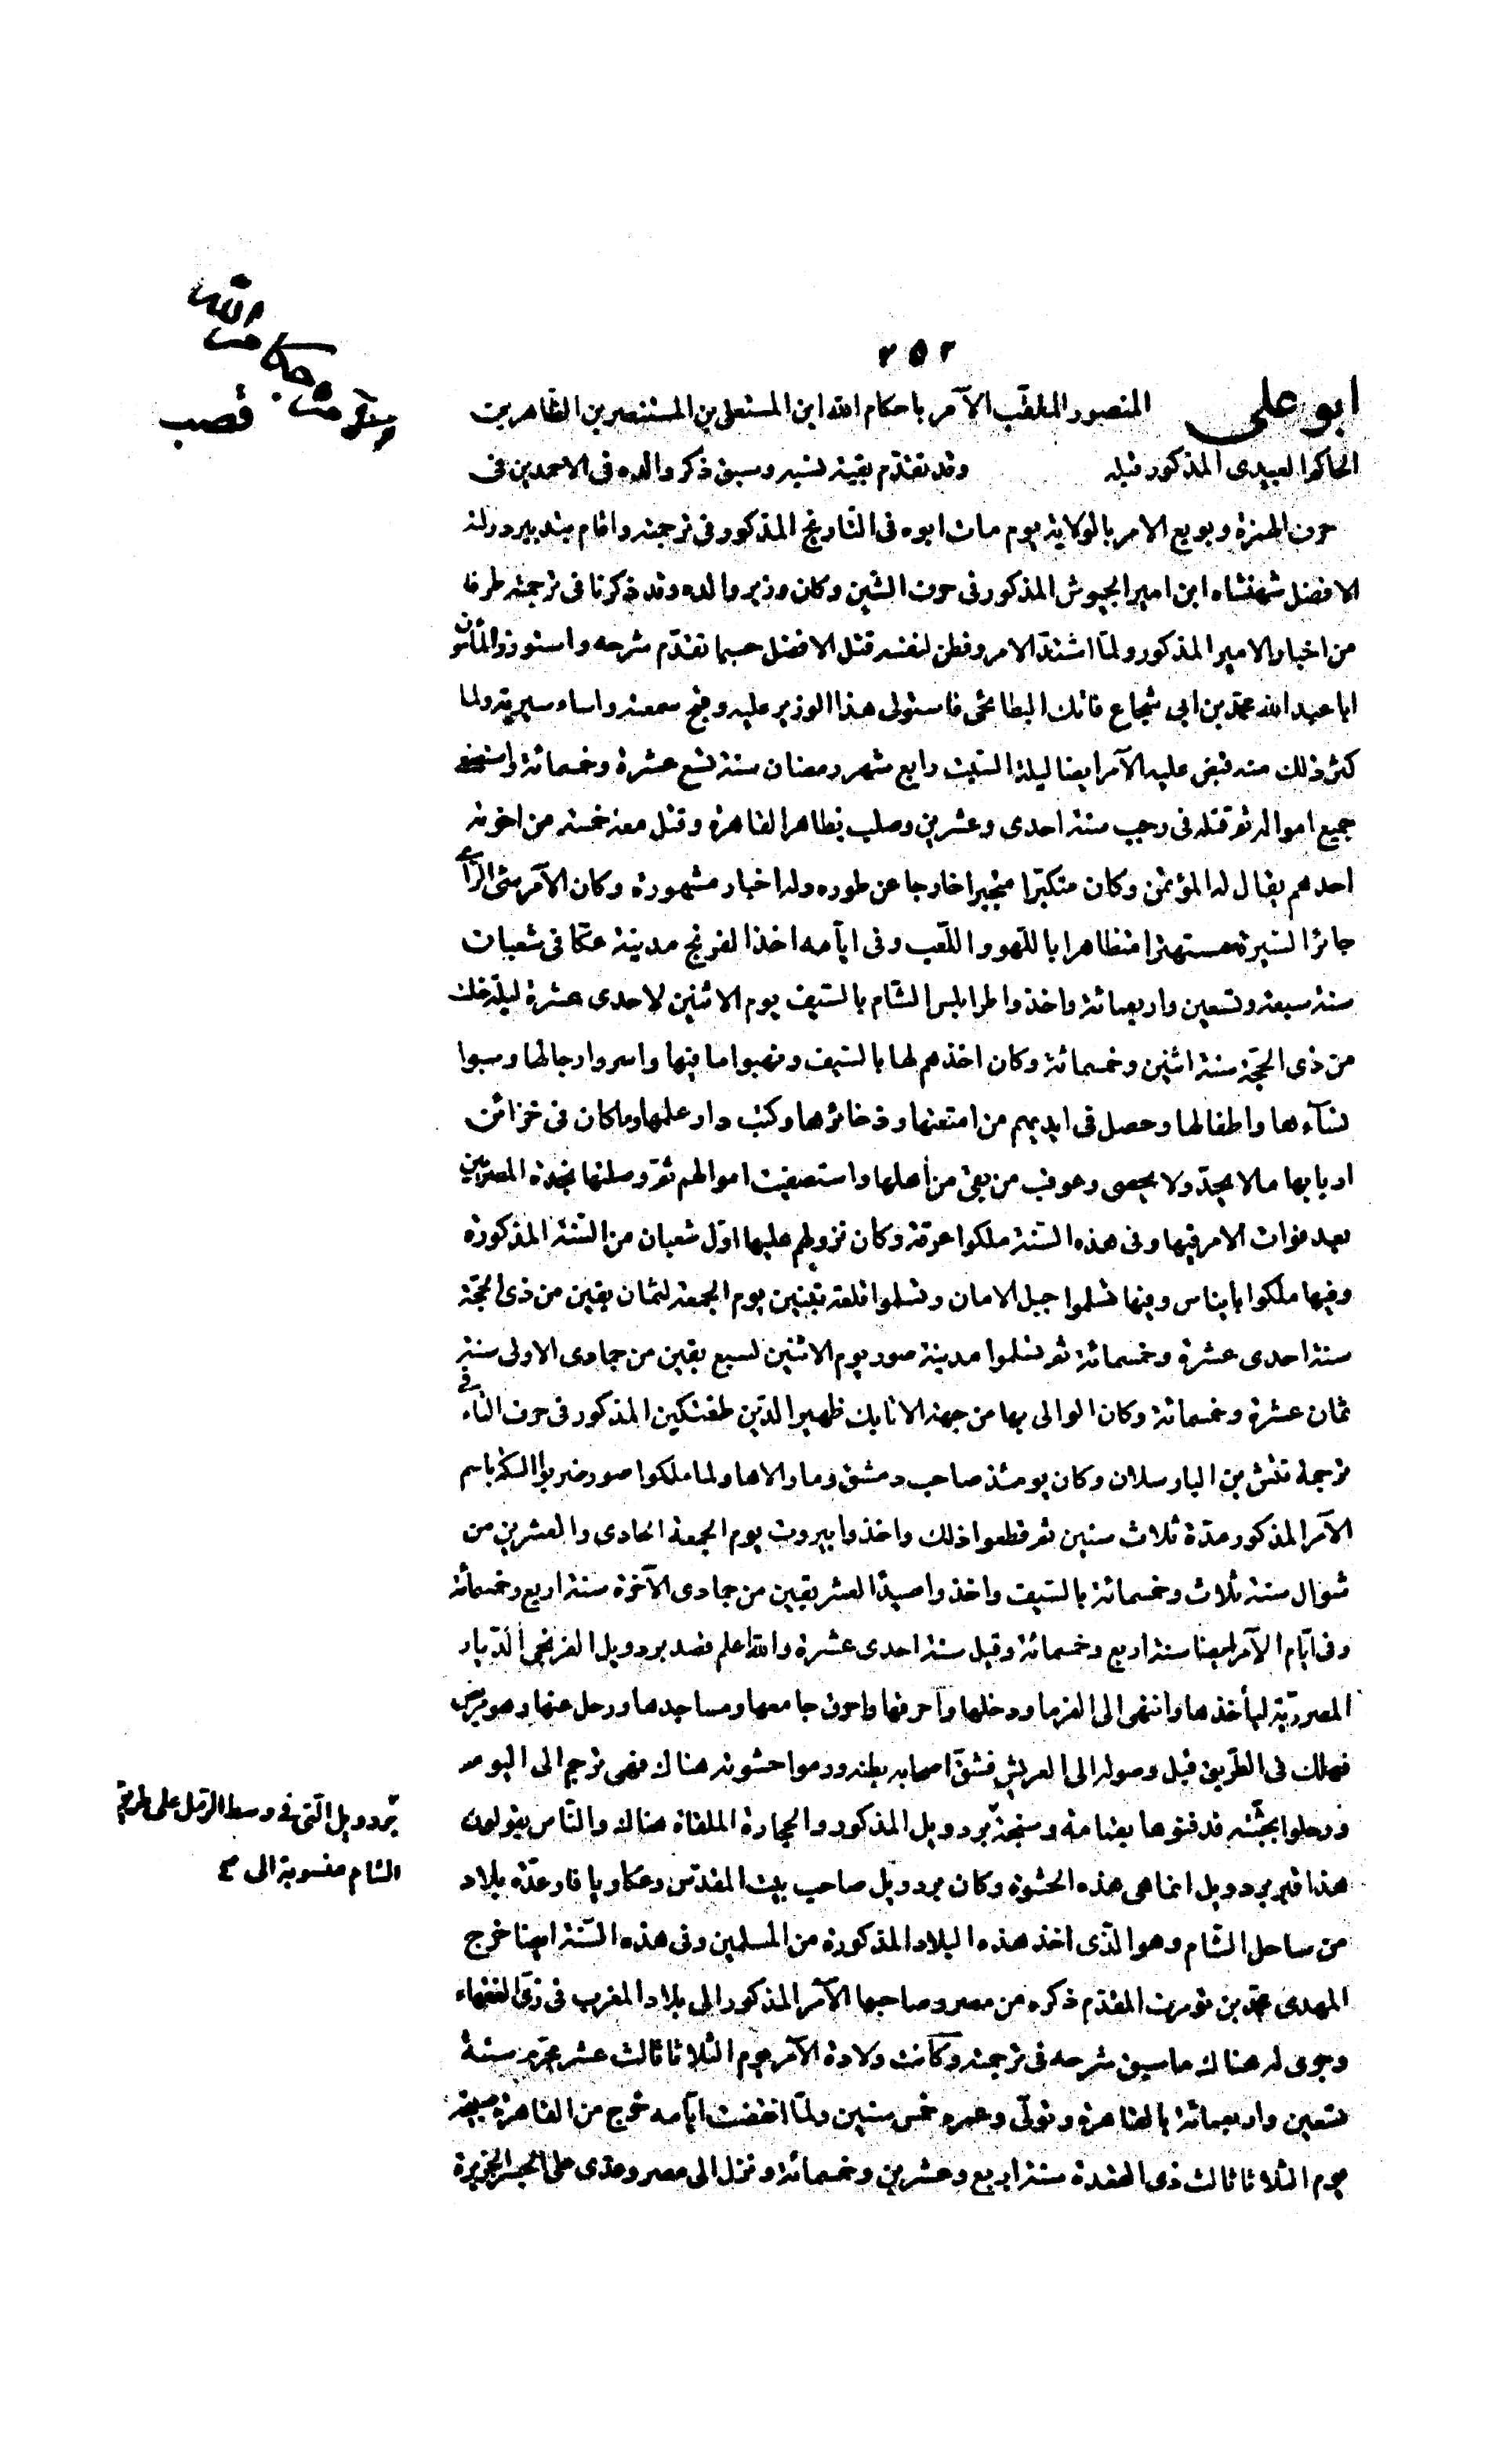 ٢٥٢
ابو على المنصور الملقب الآمر باحكام الله ابن المستعلى بن المستنصر بن الظاهر بن
الحاكم العبيدى المذكور قبله وقد تقدّم بقية نسبه وسبق ذكر والده فى الاحمدين فى
حرف الهمزة وبويع الامر بالولاية يوم مات ابوه فى التاريخ المذكور فى ترجمته واقام بتدبير دولته
الافضل شهنشاه ابن امير الجيوش المذكور فى حرف الشين وكان وزير والده وقد ذكرنا فى ترجمته طرفا
من اخبار الامير المذكور ولمّا اشتدّ الامر وفطن لنفسه قتل الافضل حسبما تقدّم شرحه واستوزر المأمون
ابا عبد الله محمّد بن ابى شجاع فاتك البطائحى فاستولى هذا الوزير عليه وقبح سمعته واساء سيرته ولما
كثر ذلك منه قبض عليه الآمر ايضا ليلة السبت رابع شهر رمضان سنة تسع عشرة وخمسمائة واستصفى
جميع امواله ثم قتله فى رجب سنة احدى وعشرين وصلب بظاهر القاهرة وقتل معه خمسة من اخوته
احدهم يقال له المؤتمن وكان متكبّرا متجبرا خارجا عن طوره وله اخبار مشهورة وكان الآمر سّئ الرأى
جائر السّيرة مستهترا متظاهرا باللّهو واللّعب وفى ايآمه اخذ الفرنج مدينة عكّا فى شعبان
سنة سبعة وتسعين واربعمائة واخذوا طرابلس الشام بالسّيف يوم الاثنين لاحدى عشرة ليلة خلت
من ذى الحجّة سنة اثنين وخمسمائة وكان اخذهم لها بالسّيف ونهبوا ما فيها واسروا رجالها وسبوا
نسآءها واطفالها وحصل فى ايديهم من امتعتها وذخائرها وكتب دار علمها وما كان فى خزائن
اربابها مالا يحدّ ولا يحصى وعوقب من بقى من أهلها واستصفيت اموالهم ثمّ وصلتها نجدة المصريّين
بعد فوات الامر فيها وفى هذه السّنة ملكوا عرقة وكان نزولهم عليها اوّل شعبان من السّنة المذكورة
وفيها ملكوا بانياس وفيها تسلموا جبل الامان وتسلموا قلعة تبنين يوم الجمعة لثمان بقين من ذى الحجّة
سنة احدى عشرة وخمسمائة ثم تسلموا مدينة صور يوم الاثنين لسبع بقين من جمادى الاولى سنة
ثمان عشرة وخمسمائة وكان الوالى بها من جهة الاتابك ظهير الدّين طغتكين المذكور فى حرف التاء فى
ترجمة تتش بن البارسلان وكان يومئذ صاحب دمشق وما والاها ولما ملكوا صور ضربوا السكة باسم
الآمر المذكور مدّة ثلاث سنين ثم قطعوا ذلك واخذوا بيروت يوم الجمعة الحادى والعشرين من
شوال سنة ثلاث وخمسمائة بالسّيف واخذوا صيدا لعشر بقين من جمادى الآخرة سنة اربع وخمسمائة
وفى ايّام الآمر ايضا سنة اربع وخمسمائة وقيل سنة احدى عشرة والله اعلم قصد بردويل الفرنجى الدّيار
المصريّة ليأخذها وانتهى الى الفرما ودخلها وأحرقها واحرق جامعها ومساجدها ورحل عنها وهو مريض
فهلك فى الطّريق قبل وصوله الى العريش فشقّ اصحابه بطنه ورموا حشوته هناك فهى ترجم الى اليوم
ورحلوا بجثّته فدفنوها بقمامة وسبخة بردويل المذكور والحجارة الملقاة هناك والنّاس يقولون
هذا قبر بردويل انما هى هذه الحشوة وكان بردويل صاحب بيت المقدّس وعكا ويافا وعدّة بلاد
من ساحل الشام وهو الذّى اخذ هذه البلاد المذكورة من المسلمين وفى هذه السّنة ايضا خرج
المهدى محمّد بن تومرت المقدّم ذكره من مصر وصاحبها الآمر المذكور الى بلاد المغرب فى زىّ الفقهاء
وجرى له هناك ما سبق شرحه فى ترجمته وكانت ولادة الآمر يوم الثلاثا ثالث عشر محرّم سنة
تسعين واربعمائة بالقاهرة وتولّى وعمره خمس سنين ولمّا انقضت ايّامه خرج من القاهرة صبيحة
يوم الثلاثا ثالث ذى القعدة سنة اربع وعشرين وخمسمائة ونزل الى مصر وعدى على الجسر الجزيرة
بردويل الّتى فى وسط الرّمل على طريق
الشام منسوبة الى